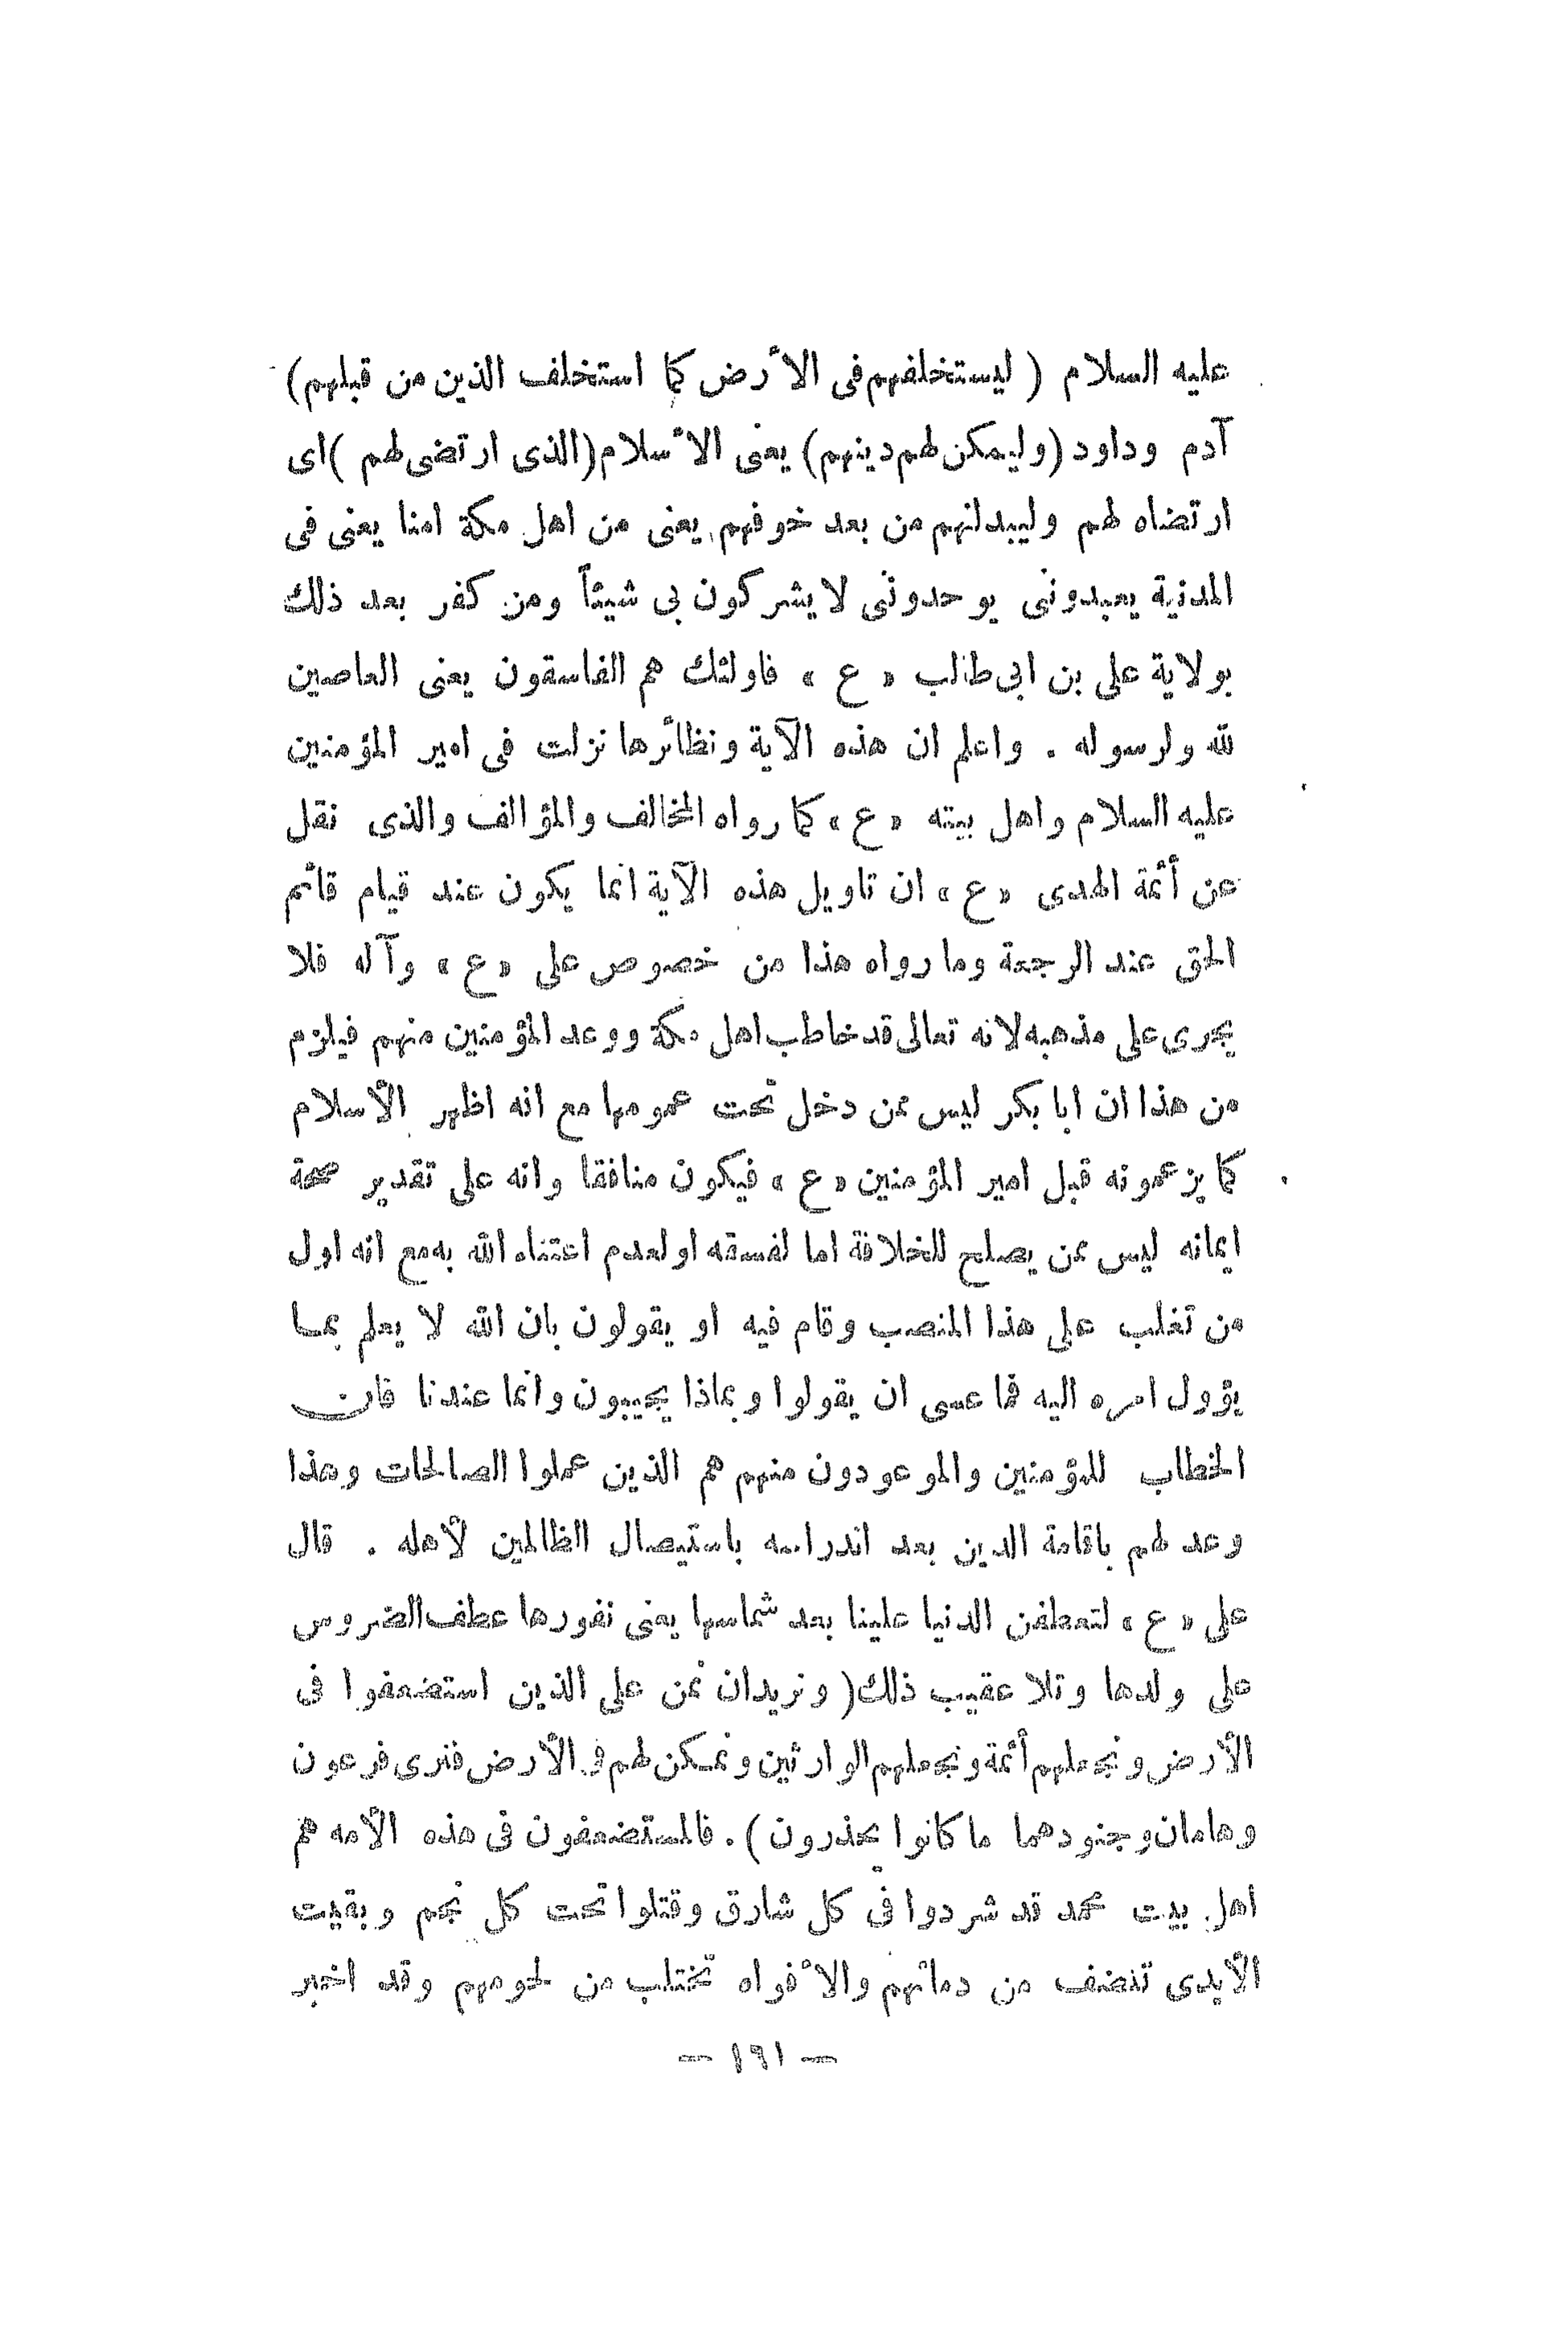 عليه السلام ( ليستخلفهم فى الأرض كما استخلف الذين من قبلهم)
آدم وداود (وليمكن لهم دينهم) يعنى الأسلام(الذى ارتضى لهم )اى
ارتضاه لهم وليبدلنهم من بعد خوفهم يعنى من اهل مكة امنا يعنى فى
المدنية يعبدونى يوحدونى لا يشركون بى شيئاً ومن كفر بعد ذلك
بولاية على بن ابى طالب « ع » فاولئك هم الفاسقون يعنى العاصين
لله ولرسوله . واعلم ان هذه الآية ونظائرها نزلت فى امير المؤمنين
عليه السلام واهل بيته « ع » كما رواه المخالف والمؤالف والذى نقل
عن أئمة الهدى « ع » ان تاويل هذه الآية انما يكون عند قيام قائم
الحق عند الرجعة وما رواه هذا من خصوص على « ع » وآله فلا
يجرى على مذهبه لانه تعالى قد خاطب اهل مكة ووعد المؤمنين منهم فيلزم
من هذا ان ابا بكر ليس ممن دخل تحت عمومها مع انه اظهر الأسلام
كما يزعمونه قبل امير المؤمنين « ع » فيكون منافقا وانه على تقدير صحة
ايمانه ليس ممن يصلح للخلافة اما لفسقه او لعدم اعتناه الله به مع انه اول
من تغلب على هذا المنصب وقام فيه او يقولون بان الله لا يعلم بما
يؤول امره اليه فما عسى ان يقولوا وبماذا يجيبون وانما عندنا فان
الخطاب للمؤمنين والموعودون منهم هم الذين عملوا الصالحات وهذا
وعد لهم باقامة الدين بعد اندراسه باستيصال الظالمين لأهله . قال
على « ع » لتعطفن الدنيا علينا بعد شماسها يعنى نفورها عطف الضروس
على ولدها وتلا عقيب ذلك( ونريدان نمن على الذين استضعفوا فى
الأرض ونجعلهم أئمة ونجعلهم الوارثين ونمكن لهم فى الأرض فنرى فرعون
وهامان وجنودهما ما كانوا يحذرون ) . فالمستضعفون فى هذه الأمه هم
اهل بيت محمد قد شردوا فى كل شارق وقتلوا تحت كل نجم وبقيت
الأيدى تنضف من دمائهم والأفواه تختلب من لحومهم وقد اخبر
— ١٩١ —